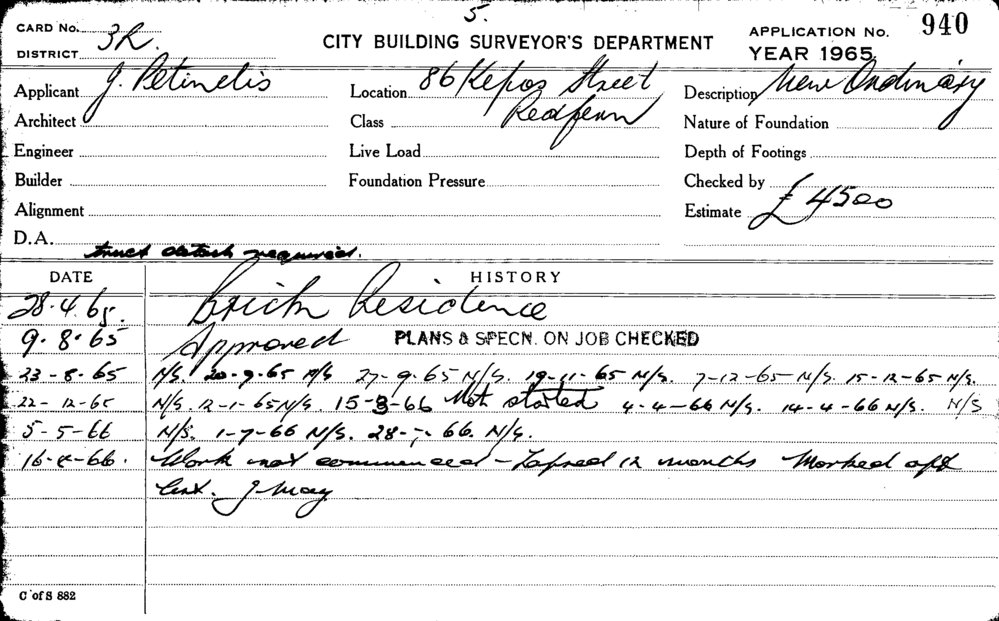 5.
CARD No. 3R.
DISTRICT
CITY BUILDING SURVEYOR'S DEPARTMENT
APPLICATION No. 940
YEAR 1965
Applicant J. Petinelis
Location 86 Kepos Street
Redfern
Description New Ordinary
Architect
Class
Nature of Foundation
Engineer
Live Load
Depth of Footings
Builder
Foundation Pressure
Checked by
Alignment
Estimate £4500
D.A.
truct details required.
DATE HISTORY
28.4.65. Brick Residence
9.8.65 Approved PLANS & SPECN. ON JOB CHECKED
23-8-65 N/S. 20-9-65 N/S 27-9-65 N/S. 19-11-65 N/S. 7-12-65 N/S. 15-12-65 N/S.
22-12-65 N/S 12-1-65 N/S. 15-3-66 Not started 4-4-66 N/S. 14-4-66 N/S. N/S
5-5-66 N/S. 1-7-66 N/S. 28-7-66. N/S.
16-8-66. Work not commenced - Lapsed 12 months Marked off
J. May
C of S 882